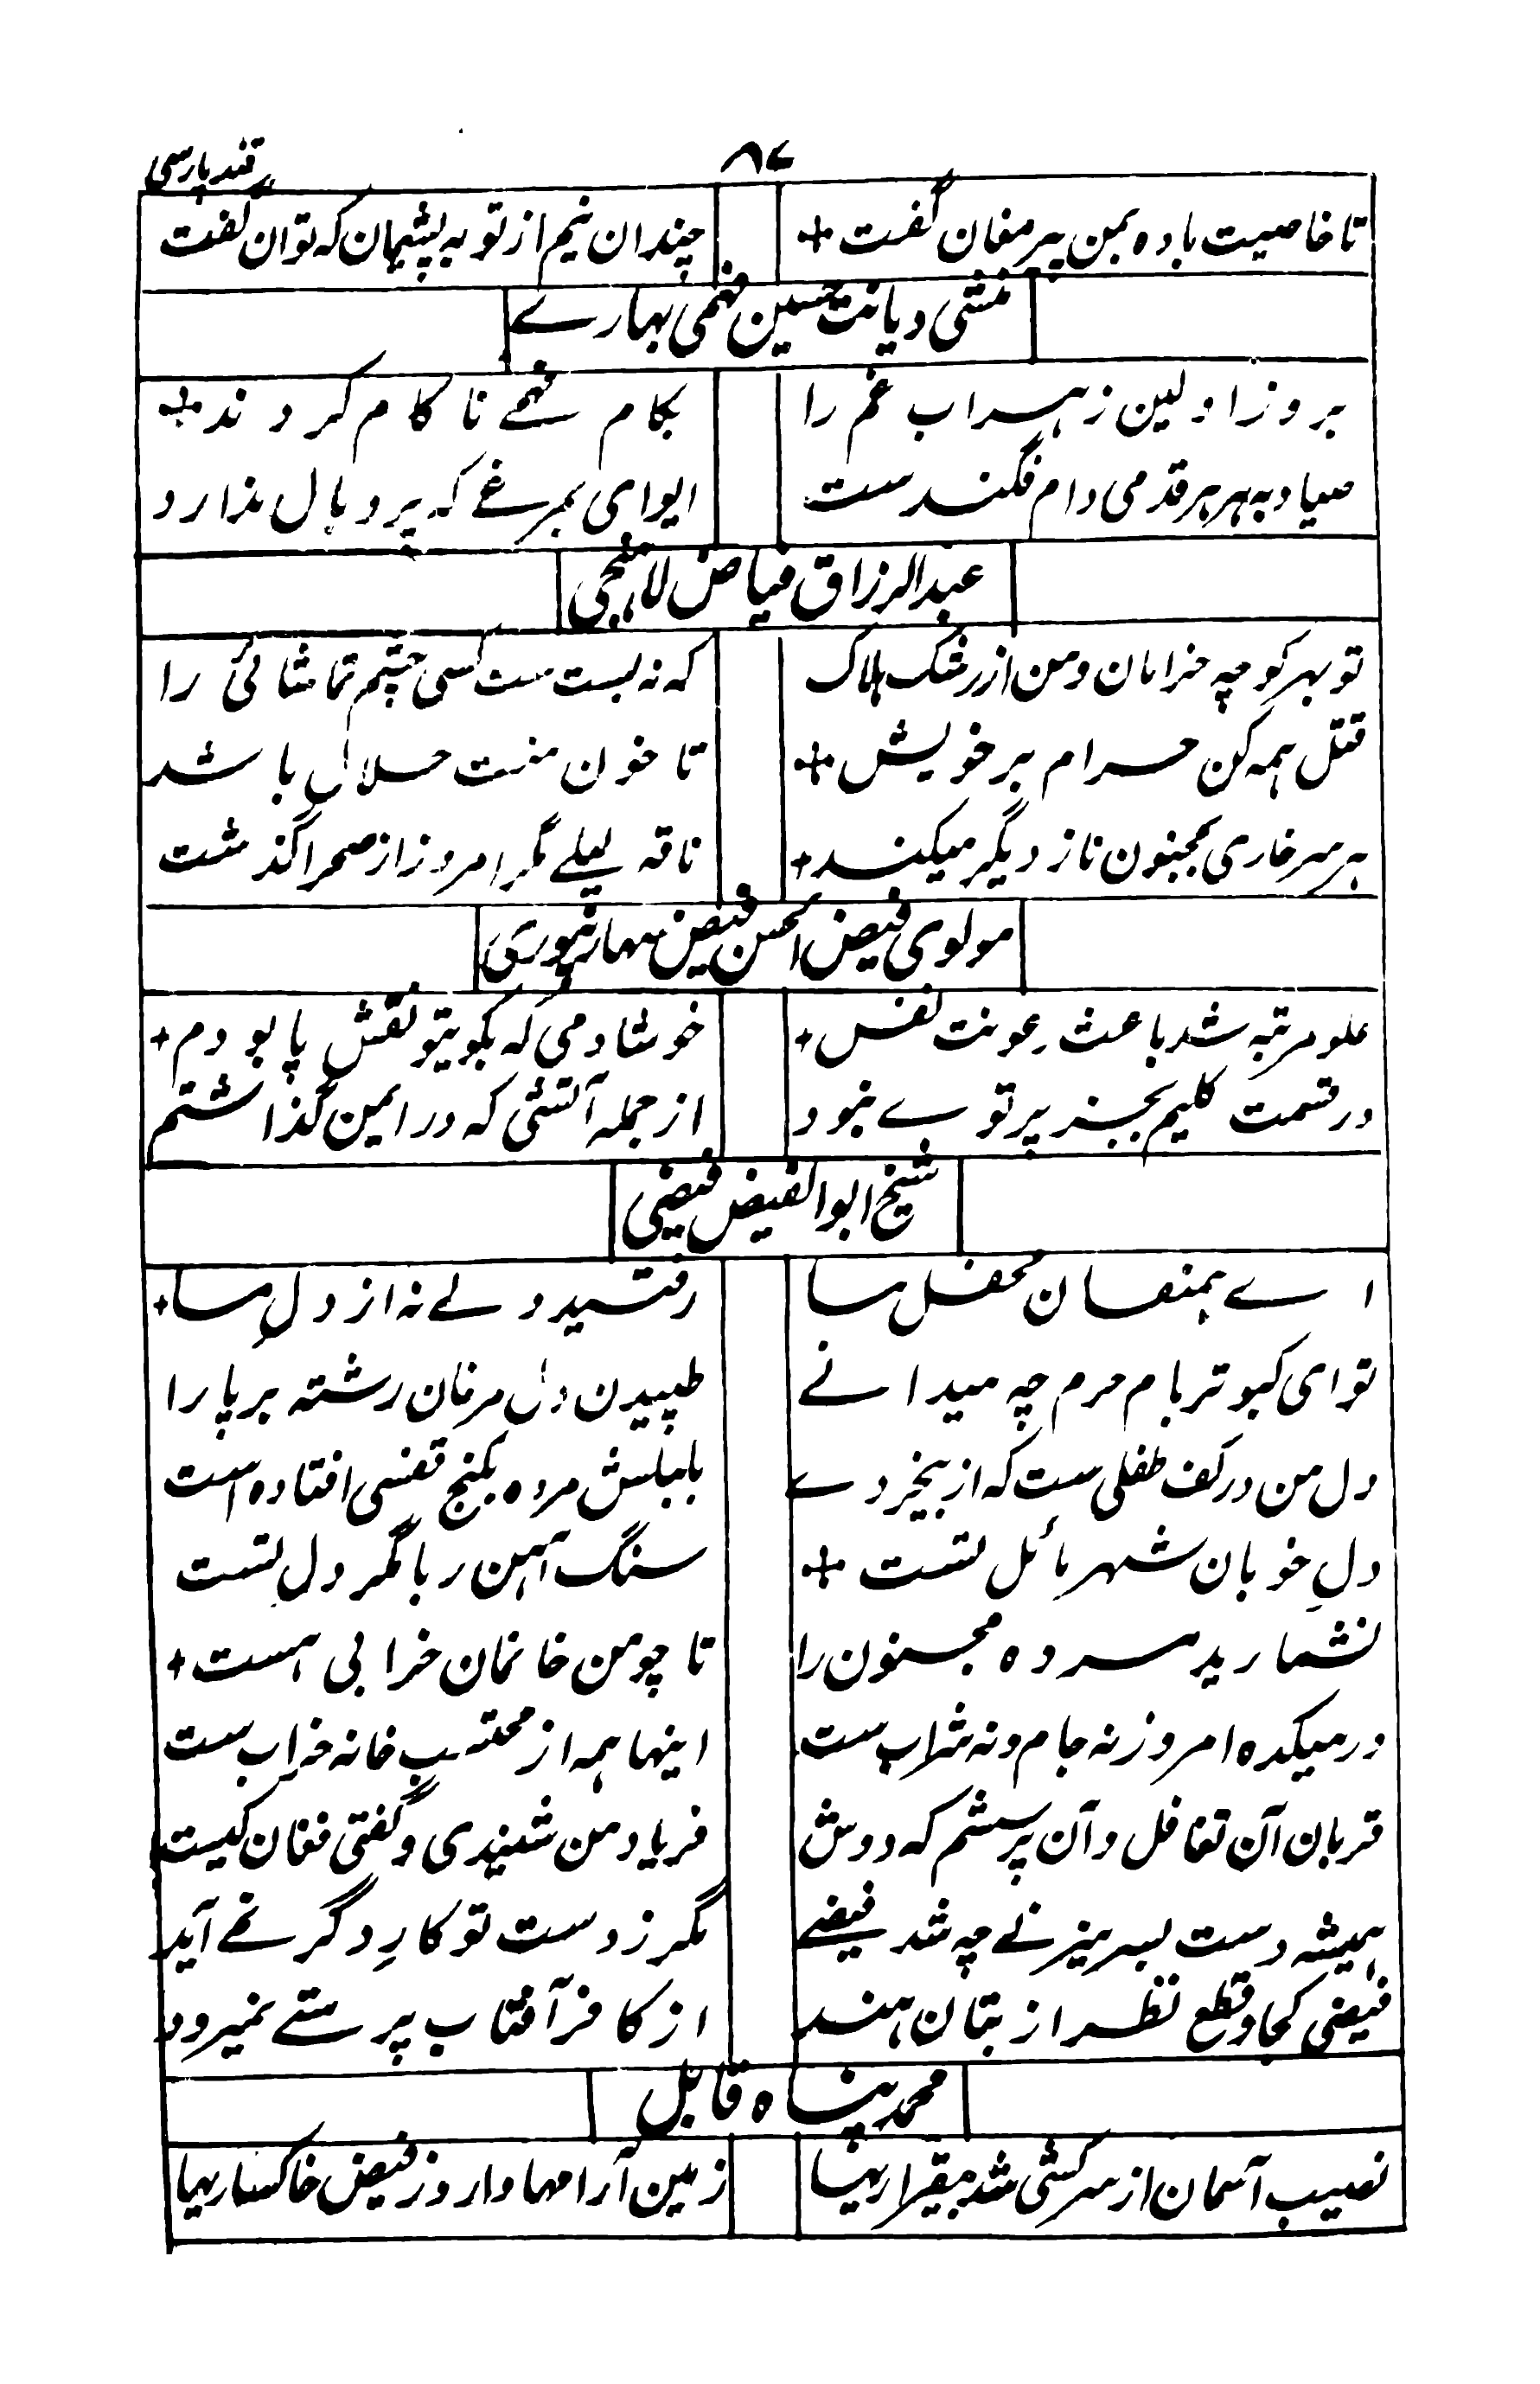 ۸۷
قند پارسی
تا خاصیت باده بمن پیر مغان گفت
چندان نیم از توبه پشیمان که توان گفت
منشی دیانت حسین فہمی بہارے
بروز اولین زہراب غم را
بکام فہمے ناکام کردند
صیاد بہ ہر ہر قدمی دام فگندست
ایوای بمرغے کہ پر و بال ندارد
عبد الرزاق فیاض لاہیجی
تو بہر کوچہ خرامان و من از رشک ہلاک
کہ نہ بست ست کسی چشم تماشائی را
قتل ہمہ کن حرام بر خویش
تا خون منت حلال باشد
ہر سر خاری بمجنون ناز دیگر میکند
ناقہ لیلے مگر امروز از صحرا گذشت
مولوی فیض الحسن فیض سہارنپوری
علو مرتبہ شد باعث رعونت نفس
خوشا دمی کہ بکویتو نقش پا بودم
در قسمت کلیم بجز پرتوے نبود
از جملہ آتشی کہ در ایمن گذاشتم
شیخ ابو الفیض فیضی
اے ہمنفسان محفل ما
رفتید ولے نہ از دلِ ما
تو ای کبوتر بام حرم چہ میدانے
طپیدن دل مرغان رشتہ بر پا را
دل من در کف طفلی ست کہ از بیخردے
بلبلش مردہ بکنج قفسی افتادہ است
دلِ خوبان شہر مائل تست
سنگ آہن ربا مگر دل تست
نشمارید مردہ مجنون را
تا چو من خانمان خرابی ہست
در میکدہ امروز نہ جام و نہ شراب ست
اینہا ہمہ از محتسب خانہ خراب ست
قربان آن تغافل و آن پرسشم کہ دوش
فریاد من شنیدی و گفتی فغان کیست
ہمیشہ دست بسر میزنے چہ شد فیضے
مگر ز دست تو کارِ دگر نمے آید
فیضی کجا و قطع نظر از بتان ہند
از کافر آفتاب پرستے نمیرود
محمد پناہ قابل
نصیب آسمان از سرکشی شد بیقراریہا
زمین آرامہا دارد ز فیض خاکساریہا